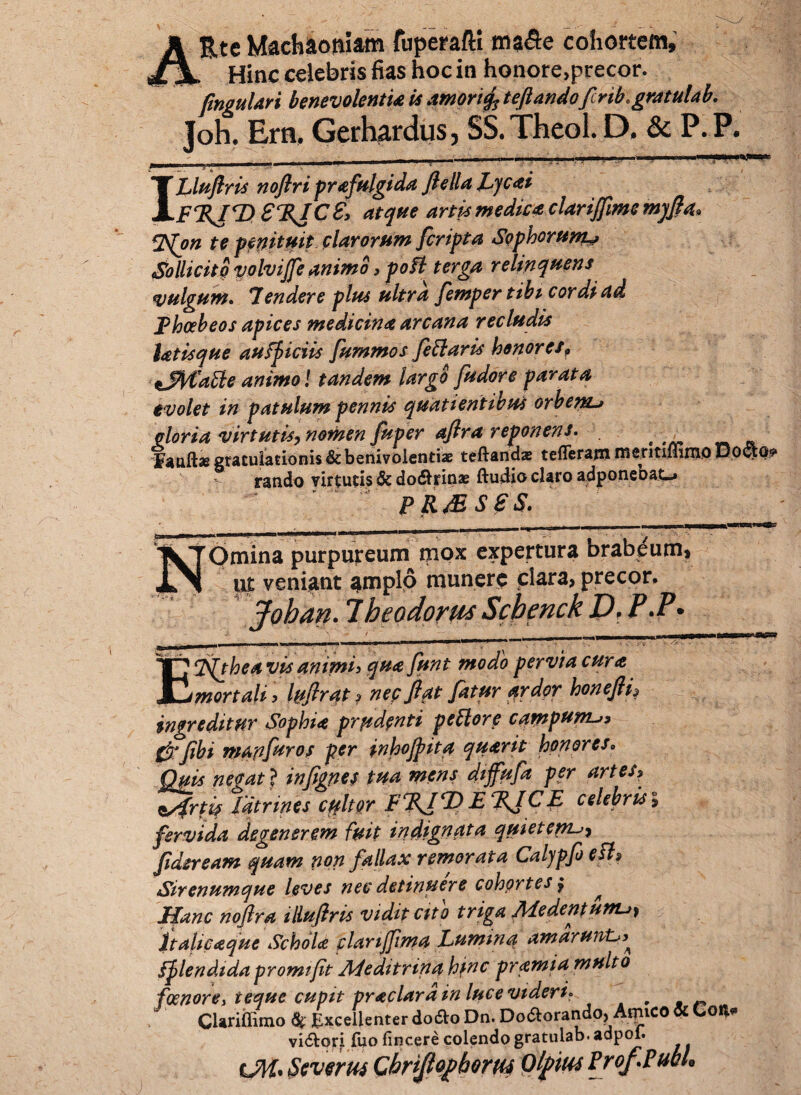 ARte Machaoniam fuperafti macte cohortem,
Hinc celebris fias hoc in honore,precor.
fingulari benevolentiæ is amoriq; teftando fcrib.gratulab.
Joh. Ern. Gerhardus, SS. Theol. D. & P. P.
ILluftris noftri præfulgida ftella Lycæi
FRJD ERJCE, atque artis medicæ clariffime myfta.
Non te pænituit clarorum fcripta Sophorum
Sollicitò volviffe animo, poft terga relinquens
vulgum. Tendere plus ultrà femper tibi cordi ad
Phœbeos apices medicinæ arcana recludis
lætisque aufpiciis fummos fectaris honores,
Macte animo! tandem largò fudore parata
evolet in patulum pennis quatientibus orbem
gloria virtutis, nomen fuper aftra reponens.
Fauftæ gratulationis & benivolentiæ teftandæ tefferam meritiffimo Docto-
rando virtutis & doctrinæ ftudio claro adponebat
PRÆSES.
NOmina purpureum mox expertura brabéum,
ut veniant amplò munere clara, precor.
Johan. Theodorus Schenck D. P.P.
ENthea vis animi, quæ funt modo pervia curæ
mortali, luftrat, nec ftat fatur ardor honefti,
ingreditur Sophiæ prudenti pectore campum,
& fibi manfuros per inhofpita quærit honores.
Quis negat? infignes tua mens diffufa per artes,
Artis Iätrines cultor FRJD ERJCE celebris;
fervida degenerem fuit indignata quietem,
fideream quam non fallax remorata Calypfo eft,
Sirenumque leves nec detinuére cohortes;
Hanc noftra illuftris vidit citò triga Medentûm,
Italicæque Scholæ clariffima Lumina amârunt,
fplendida promifit Meditrina hinc præmia multo
fœnore, teque cupit præclarâ in luce videri.
Clariffimo & Excellenter docto Dn. Doctorando, Amico & Con-
victori fuo fincerè colendo gratulab. adpof.
M. Severus Chriftophorus Olpius Prof.Publ.